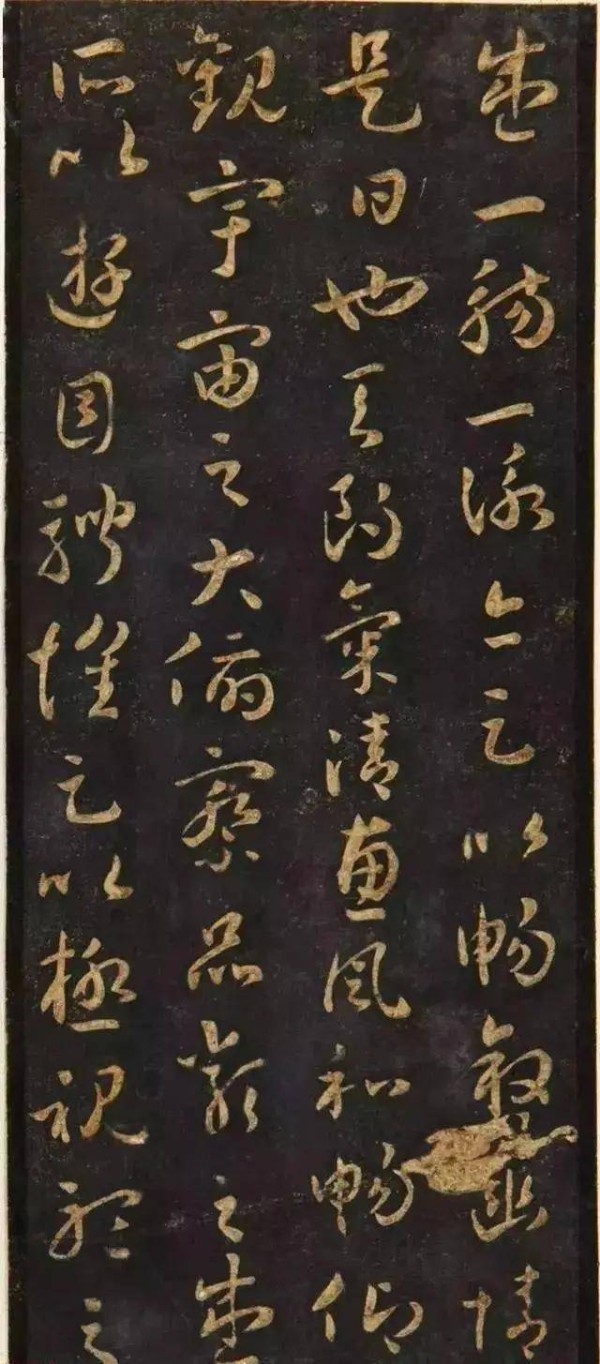 盛一觴一詠亦足以暢叙幽情
是日也天朗氣清惠風和暢仰
觀宇宙之大俯察品類之盛
所以遊目騁懷足以極視聽之